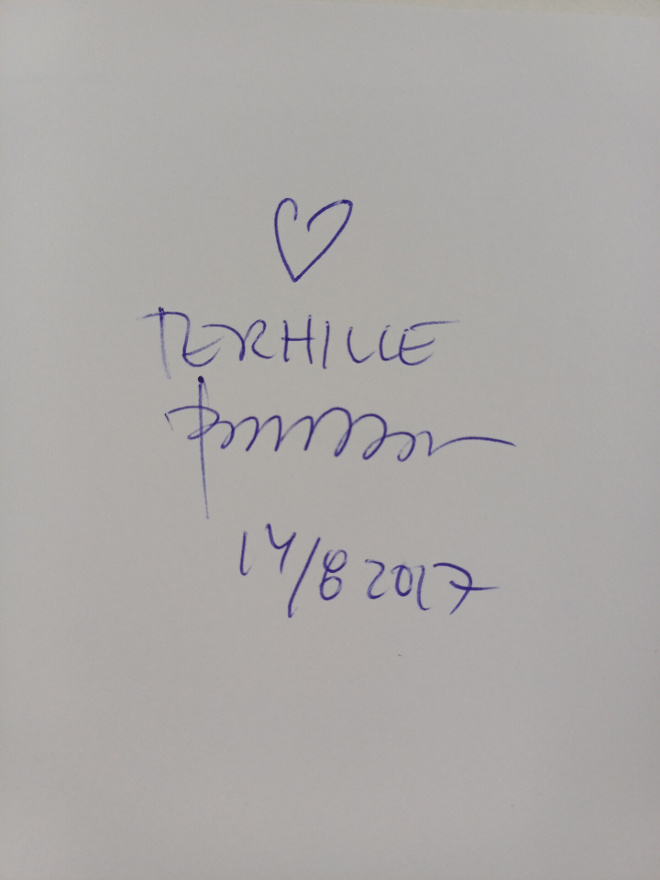 TERHILLE
14/8 2017